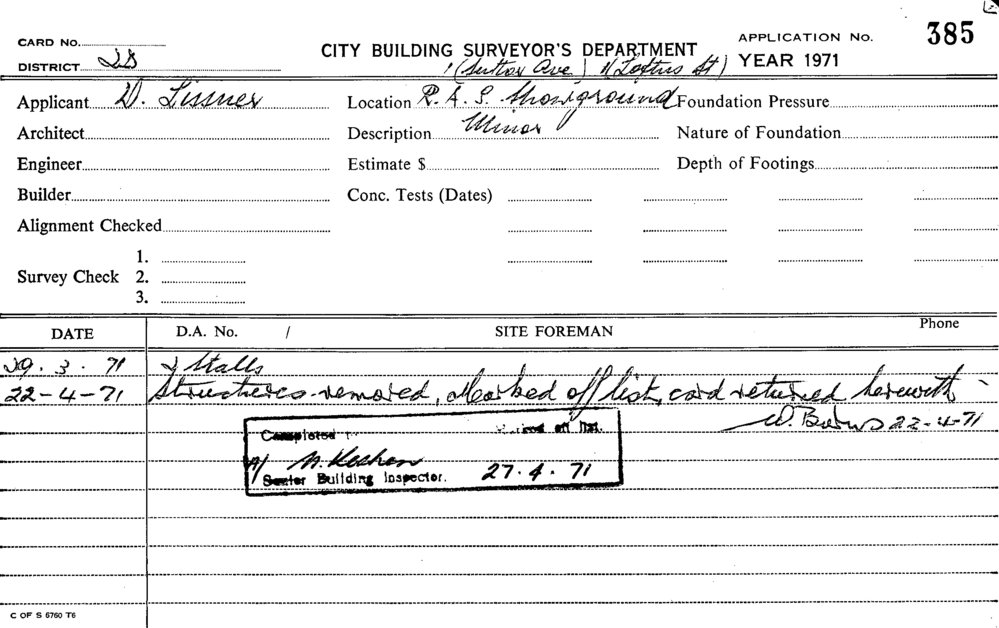 385
CARD No.
CITY BUILDING SURVEYOR'S DEPARTMENT
APPLICATION No.
DISTRICT
YEAR 1971
1 (Sutton Ave) 1 (Loftus St)
Applicant D. Lissner
Location R. A. S. Showground
Foundation Pressure
Architect
Description Minor
Nature of Foundation
Engineer
Estimate $
Depth of Footings
Builder
Conc. Tests (Dates)
Alignment Checked
1.
Survey Check 2.
3.
DATE
D.A. No. /
SITE FOREMAN
Phone
29. 3. 71 2 Stalls
22-4-71 Structures removed, Marked off list, card returned herewith
22-4-71
Completed
Marked off list.
27. 4. 71
Senior Building Inspector.
C OF S 6760 T6